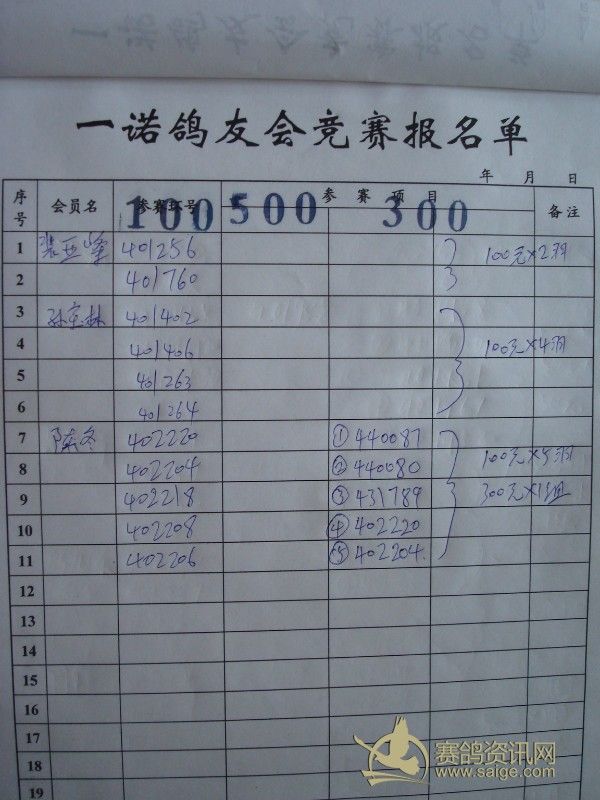 一诺鸽友会竞赛报名单
年 月 日
序号 会员名 参赛环号 参赛项目 备注
100 500 300
1 张亚峰 401256 100元×2羽
2 401760
3 401402
4 401406 100元×4羽
5 401263
6 401264
7 陈冬 402220 ①440087
8 402204 ②440080 100元×5羽
9 402218 ③431789 300元×1组
10 402208 ④402220
11 402206 ⑤402204.
12
13
14
15
16
17
18
19
赛鸽资讯网
www.saige.com